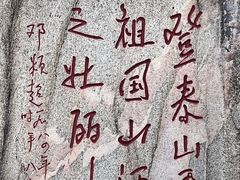 登泰山
祖国山河
之壮丽
邓颖超一九八四年
时年八